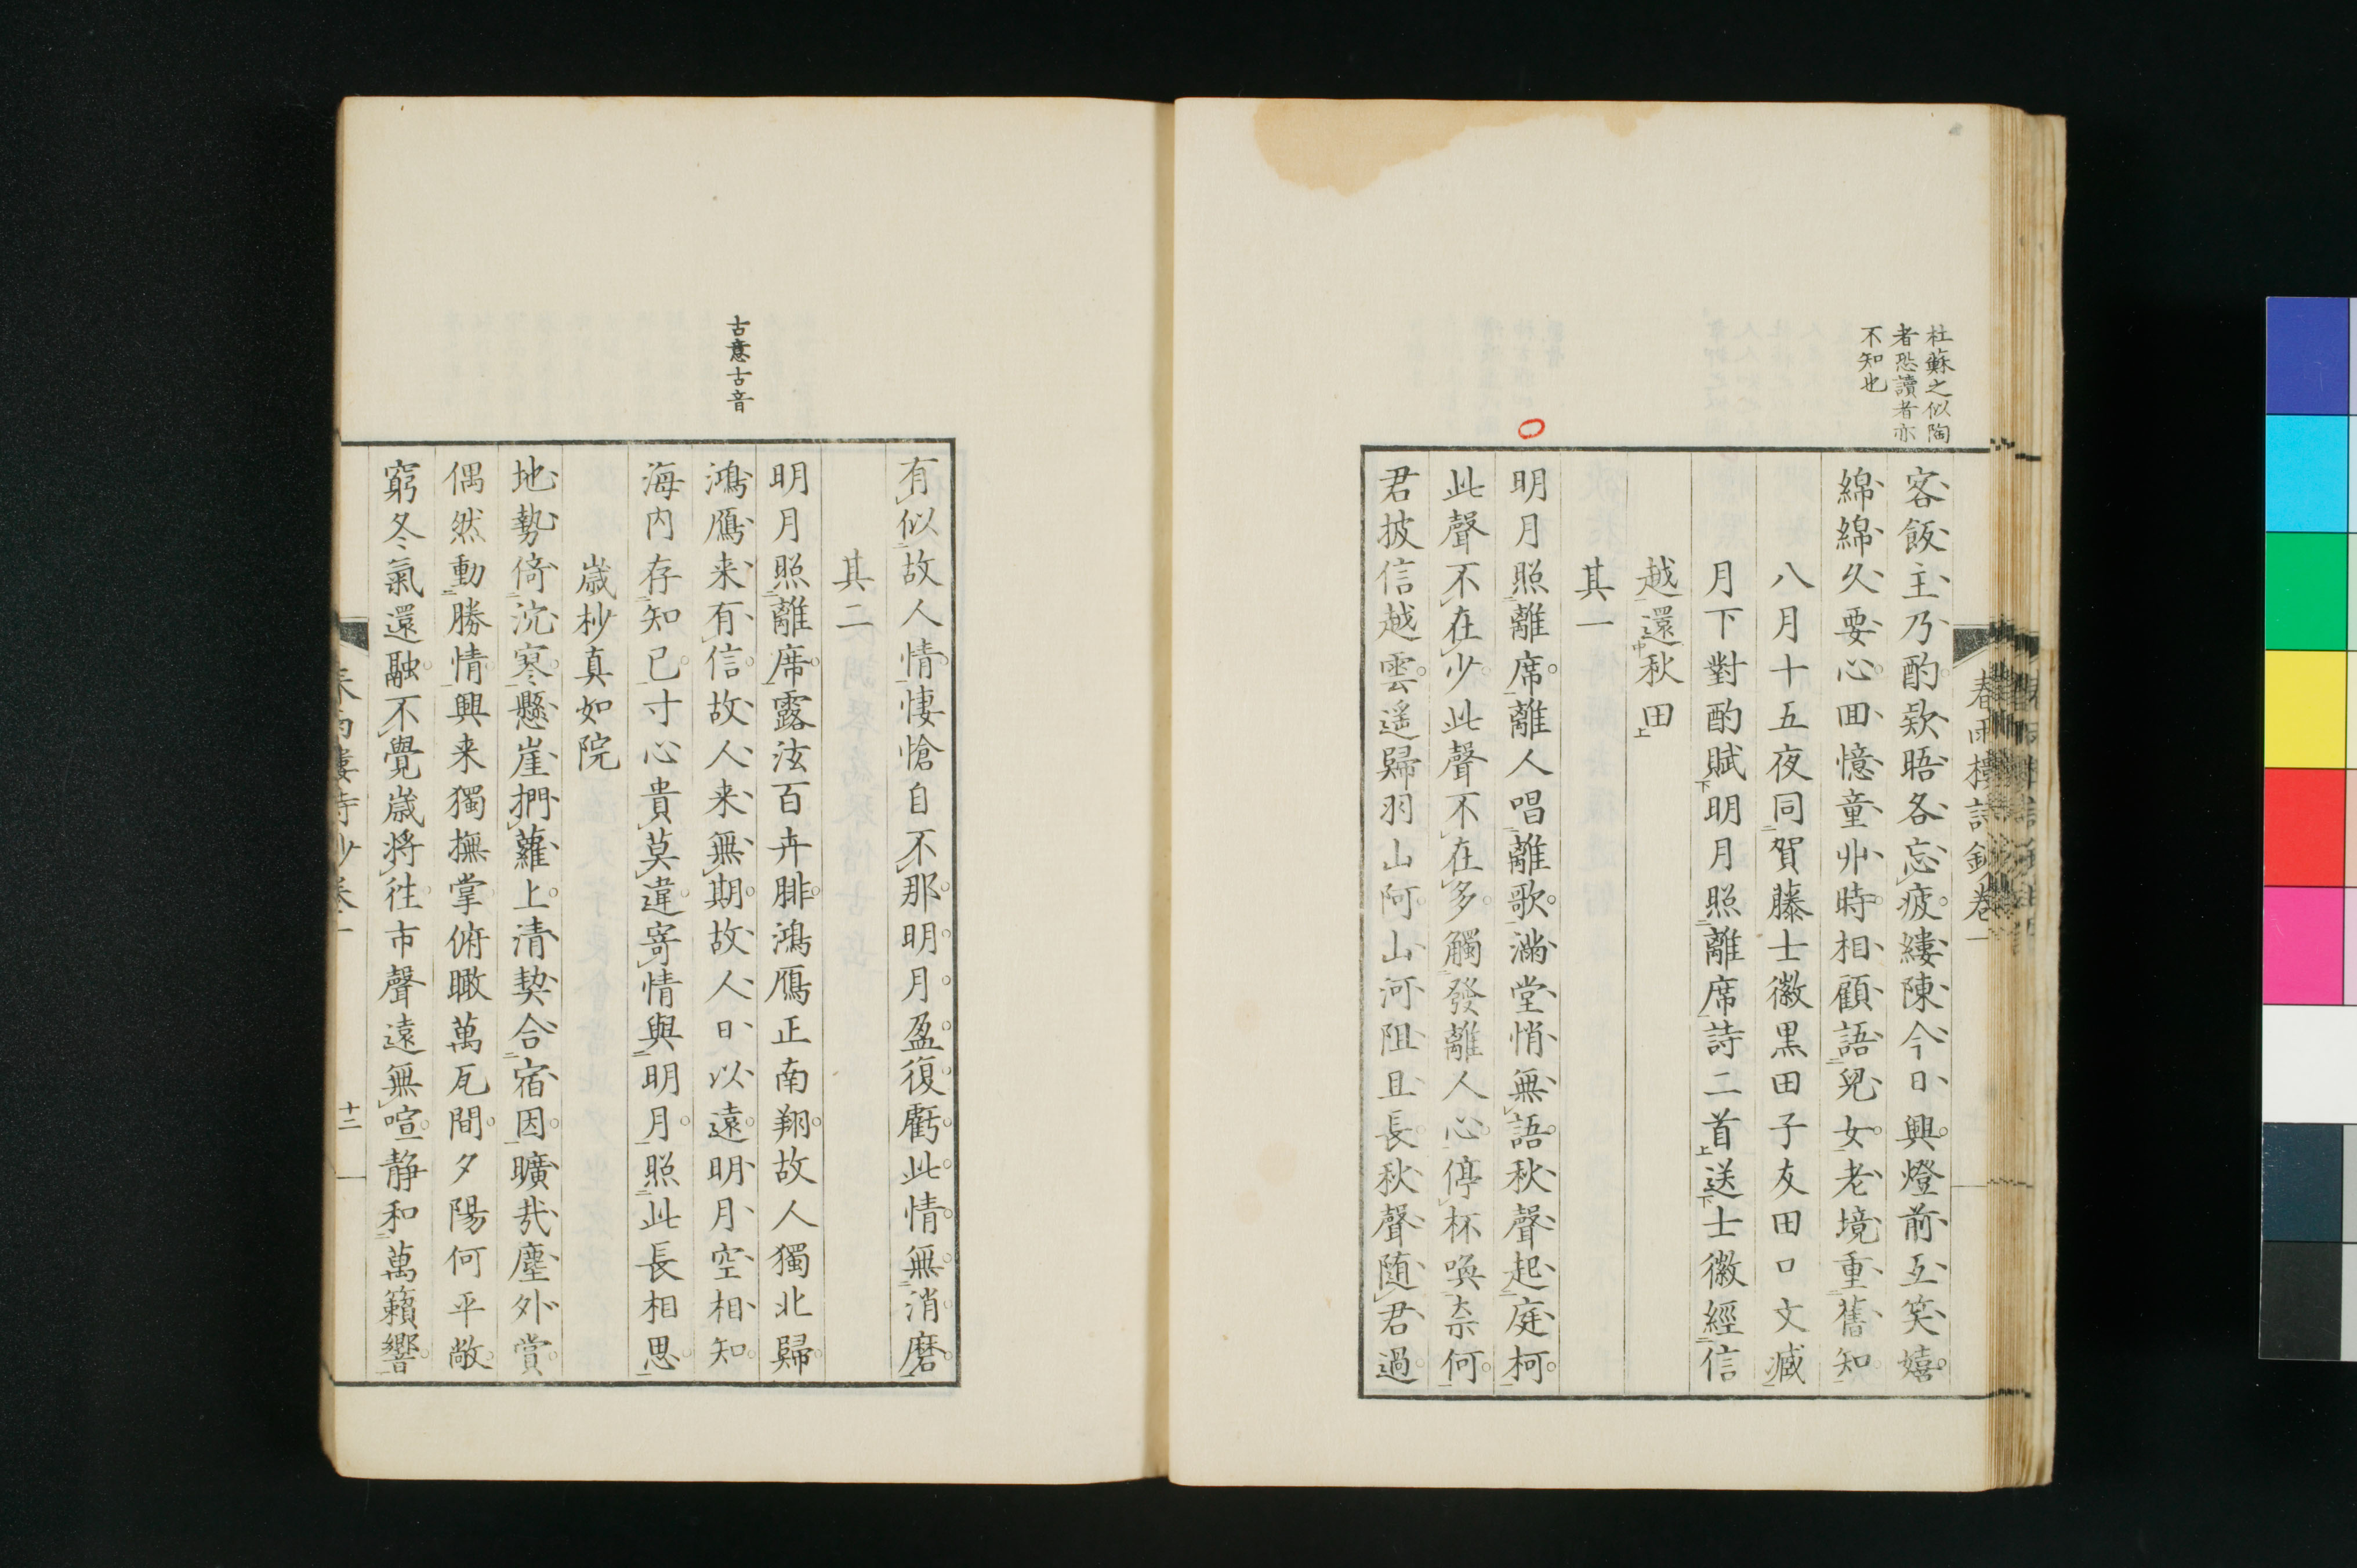 杜蘇之似陶
者恐讀者亦
不知也
春雨樓詩鈔卷一
客飯主乃酌欵晤各忘疲縷陳今日興燈前互笑嬉
綿綿久要心回憶童丱時相顧語兒女老境重舊知
八月十五夜同賀藤士徽黒田子友田口文臧
月下對酌賦明月照離席詩二首送士徽經信
越還秋田
其一
明月照離席離人唱離歌滿堂悄無語秋聲起庭柯
此聲不在少此聲不在多觸發離人心停杯喚柰何
君披信越雲遥歸羽山阿山河阻且長秋聲随君過
古意古音
有似故人情悽愴自不那明月盈復虧此情無消磨
其二
明月照離席露泫百卉腓鴻鴈正南翔故人獨北歸
鴻鴈来有信故人来無期故人日以遠明月空相知
海内存知己寸心貴莫違寄情與明月照此長相思
歳杪真如院
地勢倚沉寥懸崖捫蘿上清契合宿因曠哉塵外賞
偶然動勝情興来獨撫掌俯瞰萬瓦間夕陽何平敞
窮冬氣還融不覺歳将徃市聲遠無喧静和萬籟響
十二